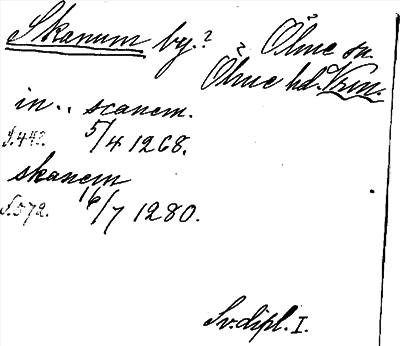 Skanum by.? Öhne sn.
? Öhne hd. Kron.
in .. scanem.
S. 442. 5/4 1268.
skanem
S. 572. 16/7 1280.
Sv. dipl. I.